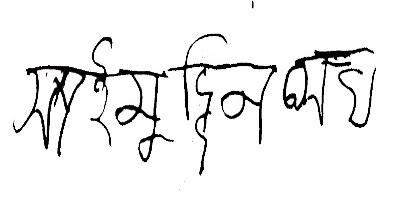 সাইমুদ্দিন সেখ